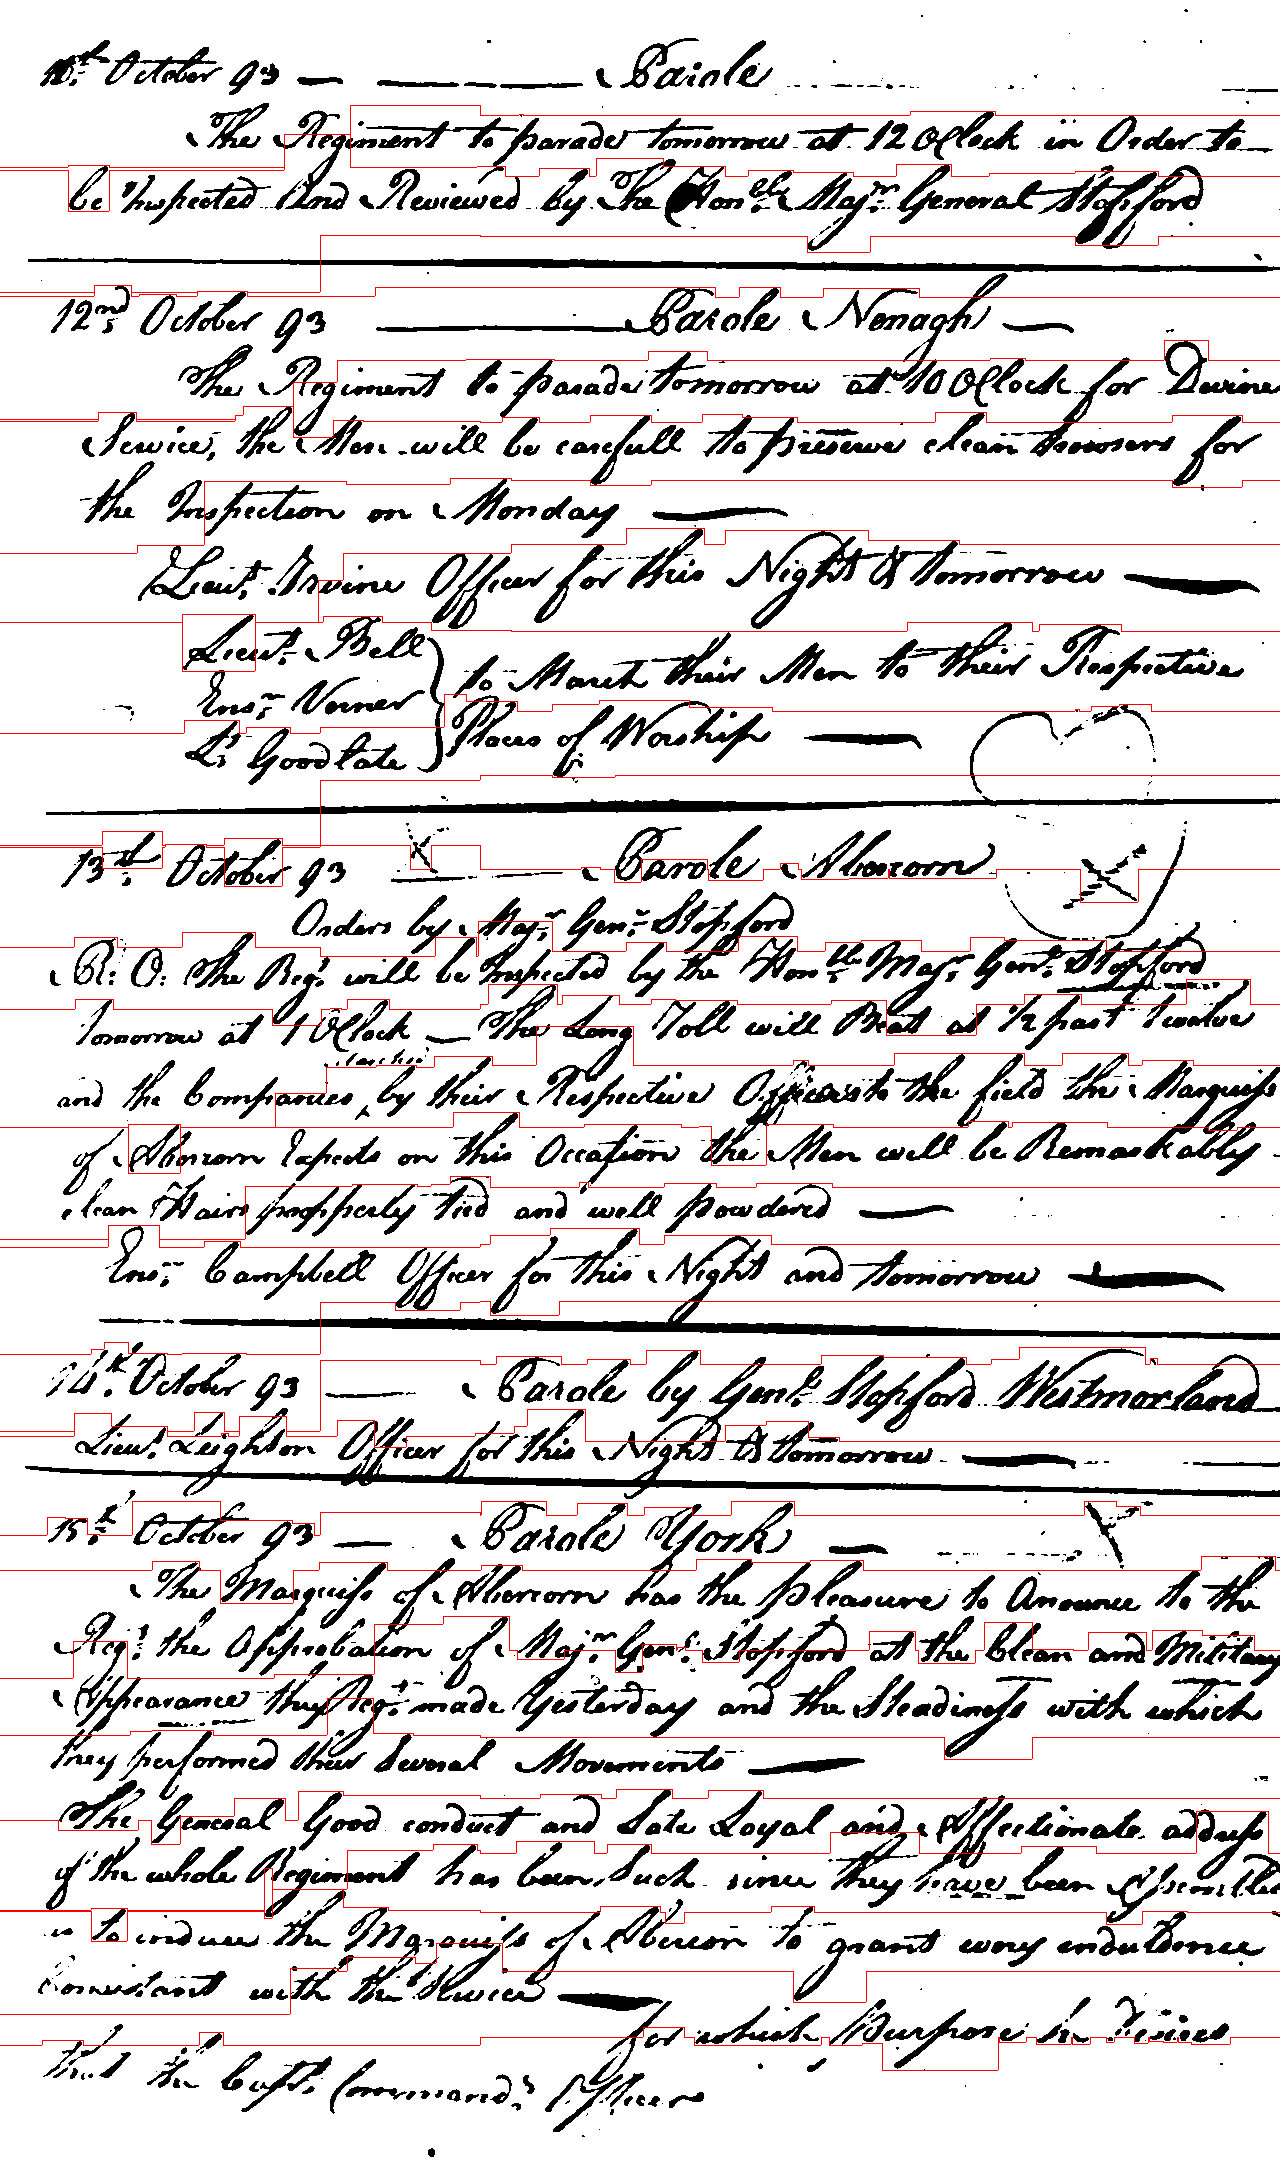 10th. October 93 — Parole
The Regiment to parade tomorrow at 12 OClock in Order to
be Inspected And Reviewed by The Honble. Majr. General Stopford
12nd. October 93 — Parole Nenagh —
The Regiment to parade tomorrow at 10 OClock for Devine
Service, the Men will be carefull to preserve clean trowsers for
the Inspection on Monday —
Lieut. Irvine Officer for this Night & tomorrow —
Lieut. Bell
Ensn. Verner
Lt. Goodlate
to March their Men to their Respective
Places of Worship —
13th. October 93 — Parole Abercorn
Orders by Majr. Genl. Stopford
R: O: The Regt. will be Inspected by the Honble Majr. Genl. Stopford
tomorrow at 1 OClock — The Long Toll will Beat at ½ past twelve
marched
and the Companies ^ by their Respective Officers to the field the Marquiss
of Abercorn Expects on this Occasion the Men will be Remarkably
clean Hairs propperly tied and well powdered —
Ensn. Campbell Officer for this Night and tomorrow —
14th. October 93 — Parole by Genl. Stopford Westmorland
Lieut. Leighton Officer for this Night & tomorrow —
15th. October 93 — Parole York —
The Marquiss of Abercorn has the pleasure to Anounce to the
Regt. the Approbation of Majr. Genl. Stopford at the Clean and Military
Appearance the Regt. made Yesterday and the Steadiness with which
they performed their Several Movements —
The General Good conduct and Late Loyal and Affectionate address
of the whole Regiment has been Such since they have been
as to induce the Marquiss of Abercorn to grant every induldence
Consistant with the Service —
for which Purpose he Desires
that the Capt. Command. Officers